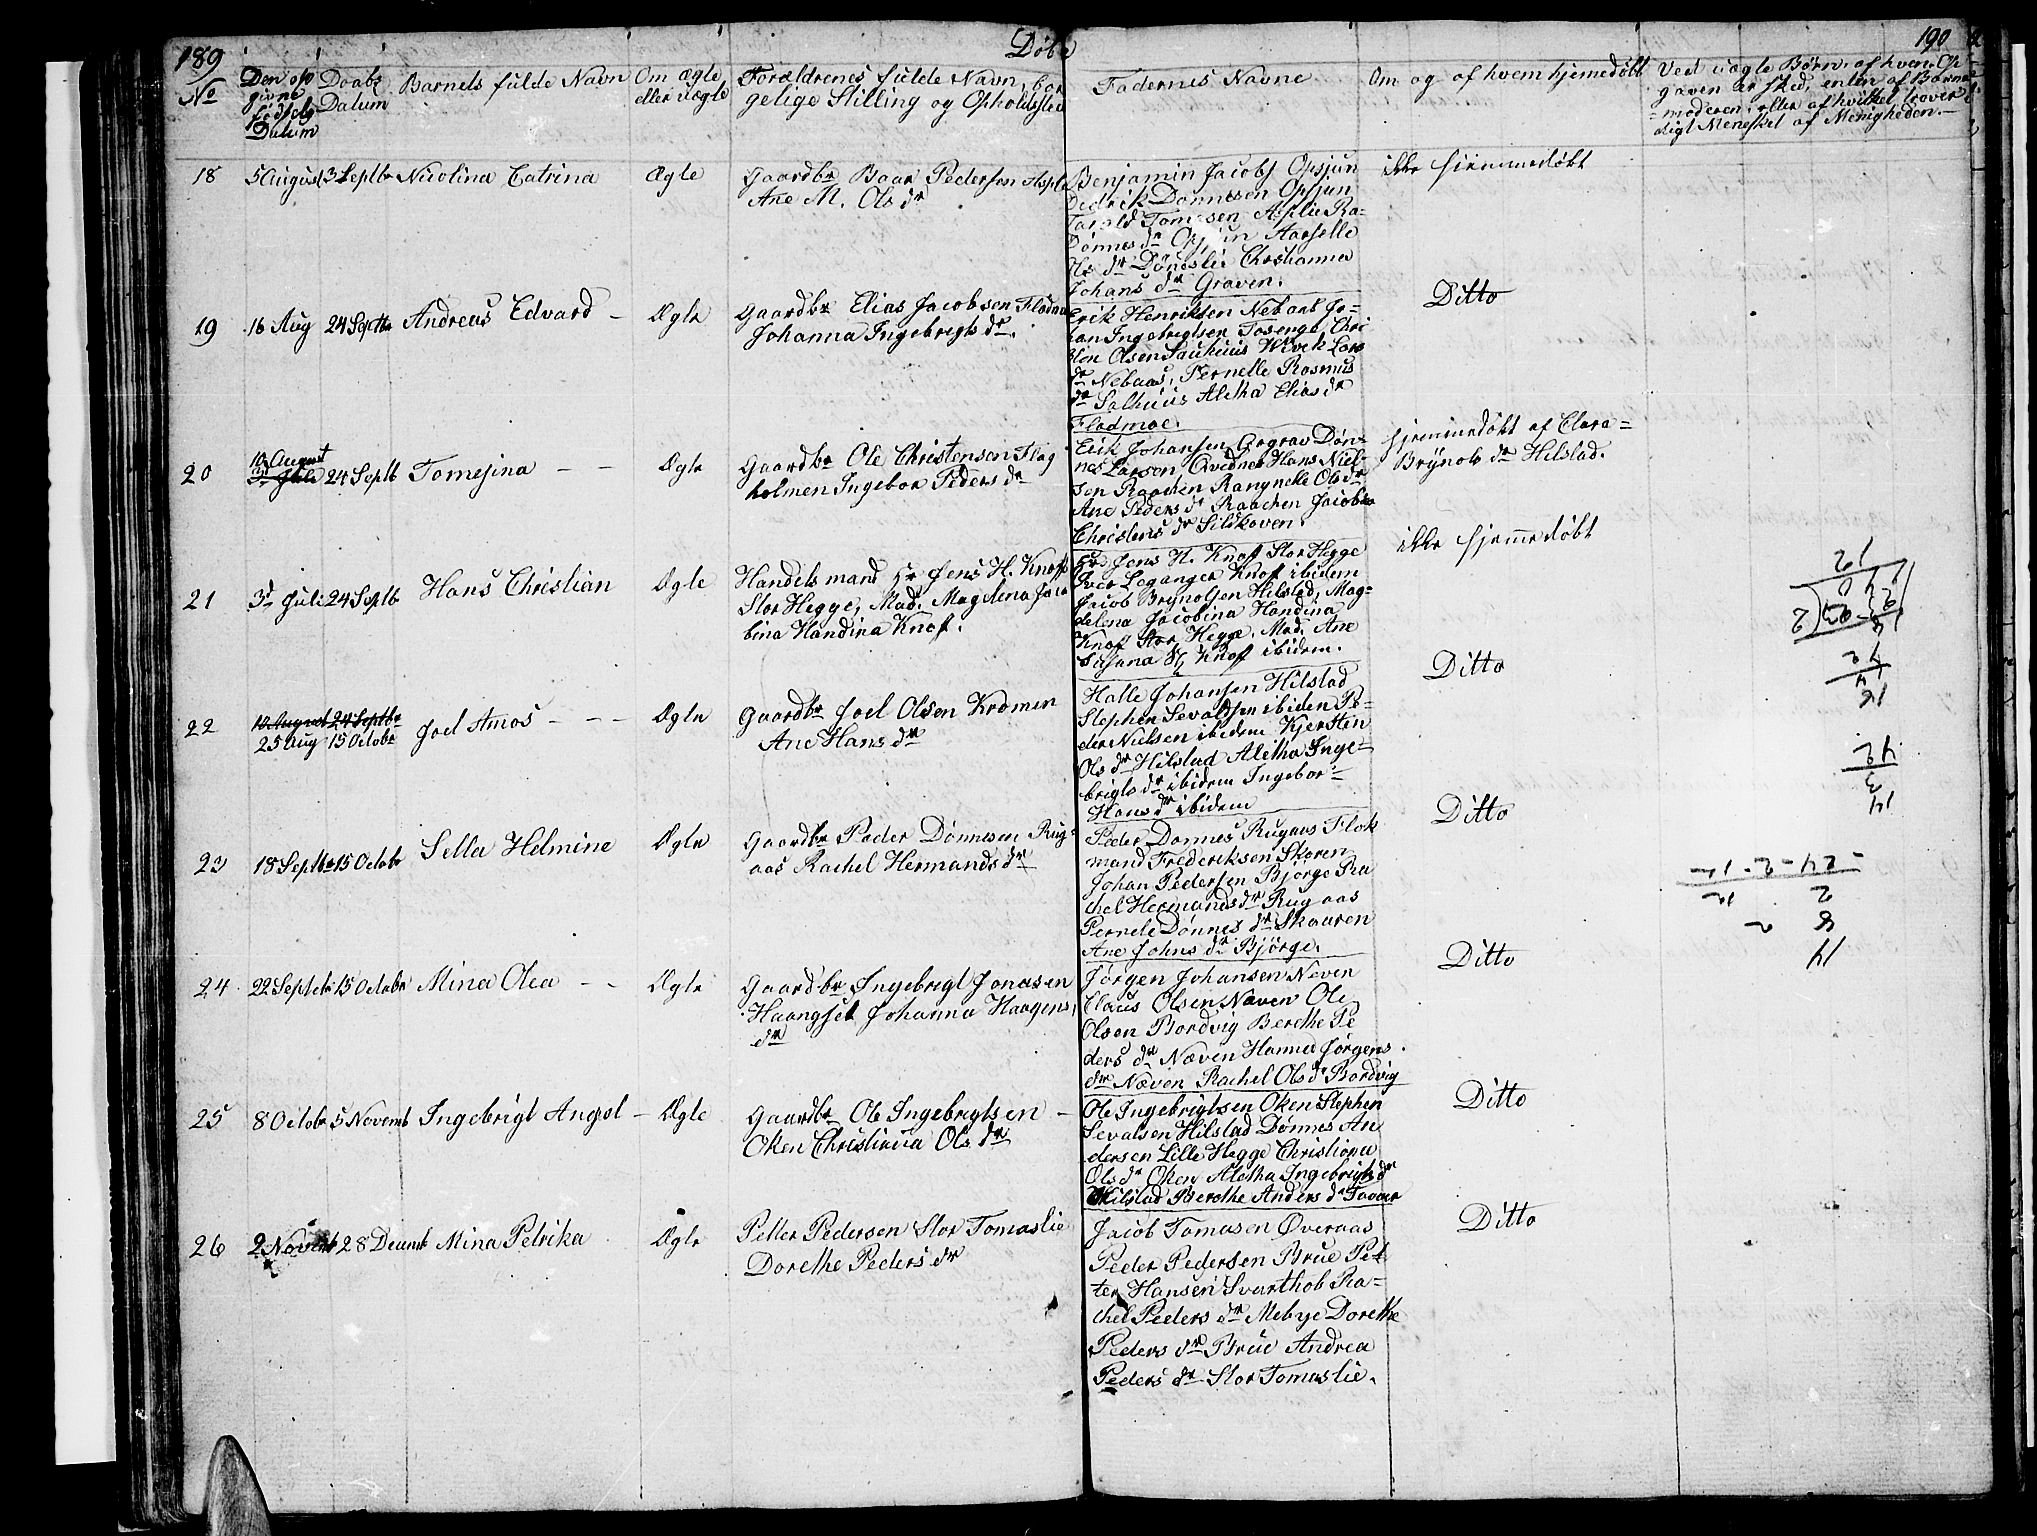 189
Døbte
190
No
Den op
givne
fødsels
Datum
Daabs
Datum
Barnets fulde Navn
Om ægte
eller uægte
Forældrenes fulde Navn, bor
gelige Stilling og Opholdssted
Fadernes Navne
Om og af hvem hjemedøbt
Ved uægte Børn, af hvem Op-
gaven er sked, enten af Barne
moderen, eller af hvilket trover
digt Meneske af Menigheden.
18
5 August
3 Septbr
Nicolina Catrina
Ægte
Gaardbr Baar Pedersen Asplie
Ane M. Ols dr
Benjamin Jacobs Opsjun
Didrik Dønnesen Opsjun
Tomesen Asplie Ra=
Dønnes dr Opsjun
Ols dr Døneslie Christianna
Johans dr Graven.
ikke hjemmedøbt
19
16 Aug
24 Septbr
Andreas Edvard –
Ægte
Gaardbr Elias Jacobsen Flodmoe
Johanna Ingebrigts dr.
Erik Henriksen Nebaas Jo=
han Ingebrigtsen Tosenge, Chri
sten Olsen Lars
dr Nebaas, Pernelle Rasmus
dr Salhuus Aletha Elias dr
Flodmoe.
Ditto
20
10 August
24 Septb
Tomesina – –
Ægte
Gaardbr Ole Christensen Flag
holmen Ingebor Peders dr
Erik Johansen Døn=
nes Larsen Qvednes Hans Niel=
sen Raachen Ols dr
Ane Peders dr Raachen Jacobea
Christens dr Sildhoven.
hjemmedøbt af Clara=
Brynols dr Hilstad.
21
3d Juli
24 Septb
Hans Christian
Ægte
Handelsmand Hr Jens H. Knoff
Stor Hegge, Mad. Magdlena Jaco
bina Handina Knof.
Hr Jens H. Knoff Stor Hegge
Iver Leganger Knoff ibidem
Jacob Brynolsen Hilstad, Mag=
delena Jacobina Handina
Knoff Stor Hegge. Mad. Ane
Susana Knoff ibidem.
ikke hjemmedøbt
22
12 August 24 Septbr
25 Aug 15 Octobr
Joel Amos – – –
Ægte
Gaardbr Joel Olsen
Ane Hans dr
Halle Johansen Hilstad
Stephen Sevaldsen ibiden Pe=
der Nielsen ibidem Kjersten
Ols dr Hilstad Aletha Inge=
brigts dr ibidem Ingebor=
Hans dr ibidem
Ditto
23
18 Septbr
15 Octobr
Sella Helmine
Ægte
Gaardbr Peder Dønnesen Rug=
aas Rachel Hermands dr
Peder Dønnes Rugaas Flok
mand Frederiksen Skoren
Johan Pedersen Bjørge Ra
chel Hermands dr Rugaas
Pernele Dønnes dr Skaaren
Ane Johns dr Bjørge.
Ditto
24
22 Septbr
15 Octobr
Mina Olea – –
Ægte
Gaardbr Ingebrigt Jonasen
Haangset Johanna Haagens
dr
Jørgen Johansen Næven
Claus Olsen Næven Ole
Olsen Bordvig Berethe Pe
ders dr Næven Hanna Jørgens
dr Næven Rachel Ols dr Bordvig
Ditto
25
8 Octobr
5 Novemb
Ingebrigt Angel –
Ægte
Gaardbr Ole Ingebrigtsen –
Oken Christiana Ols dr
Ole Ingebrigtsen Oken Stephen
Sevalsen Hilstad Dønnes An
dersen Lille Hegge Christiana
Ols dr Oken Aletha Ingebrigts dr
Hilstad Berethe Anders dr
Ditto
26
2 Novemb
28 Decemb
Mina Petrika
Ægte
Petter Pedersen Stor Tomaslie
Dorethe Peders dr
Jacob Tomasen Øveraas
Peder Pedersen Brue Pet
ter Hansen Svarthob Ra=
chel Peders dr Mebye Dorethe
Peders dr Brue Andrea
Peders dr Stor Tomaslie.
Ditto